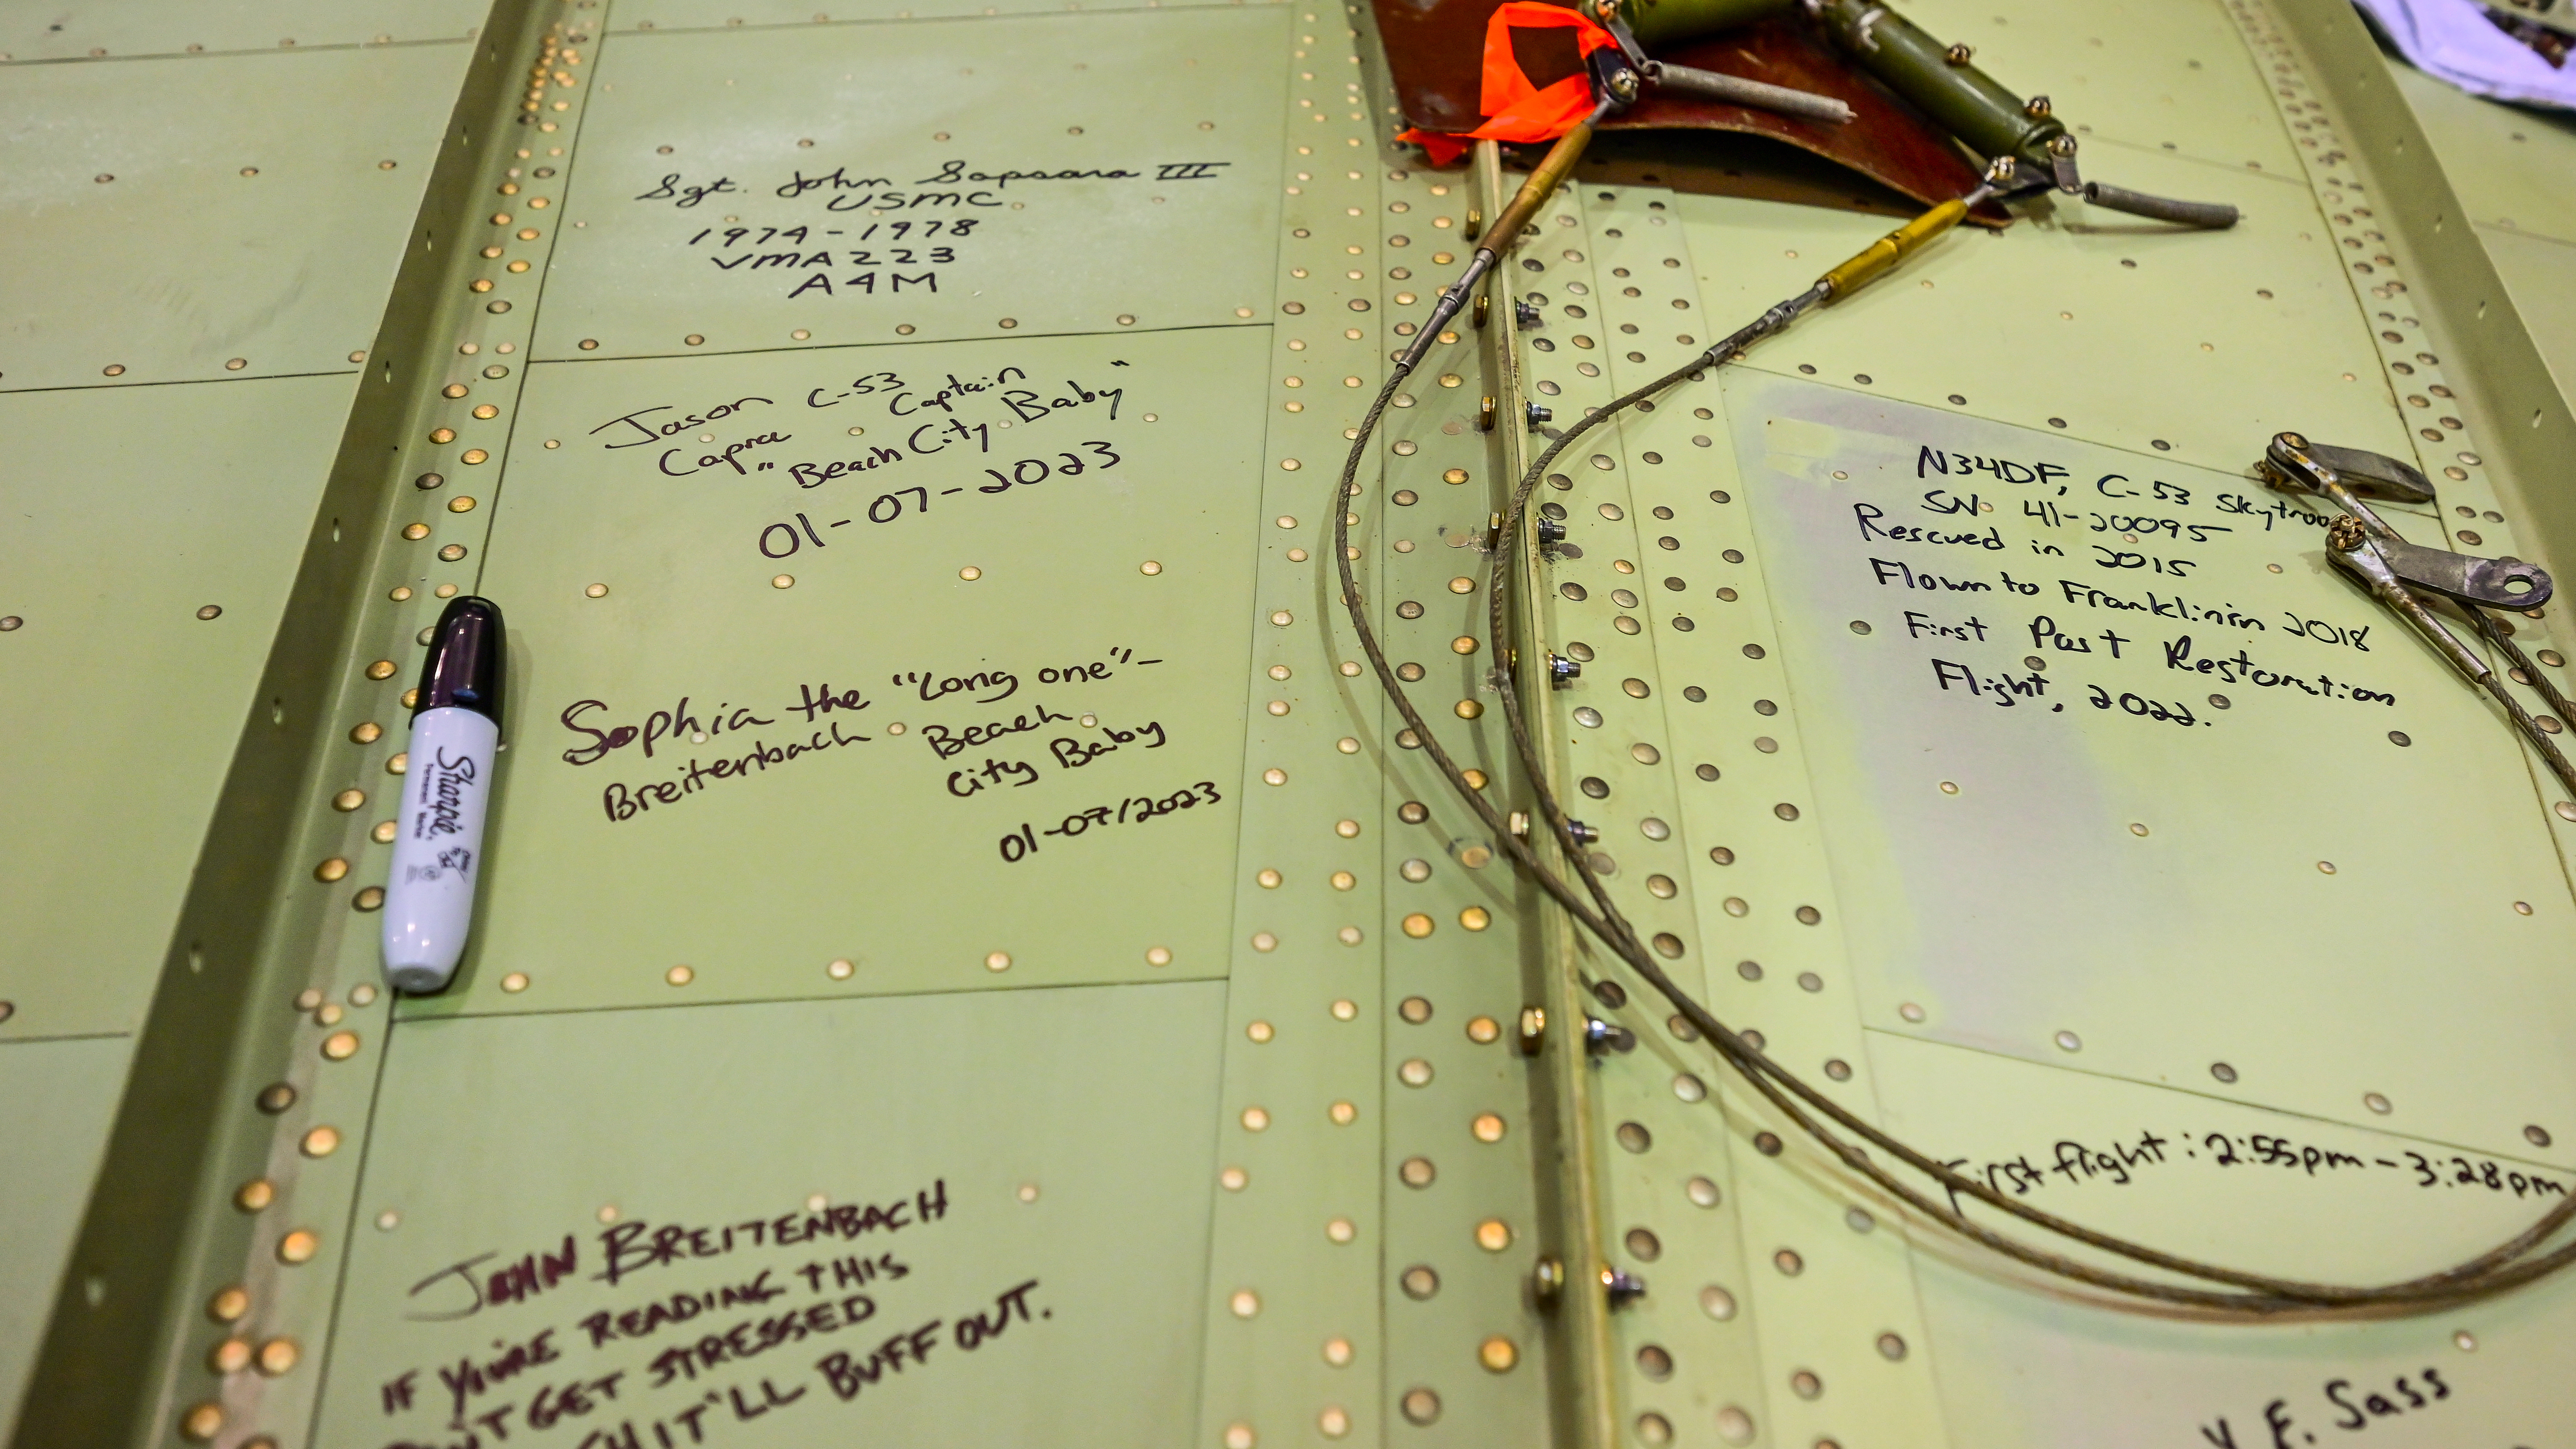 Sgt. John Sapsara III
USMC
1974-1978
VMA 223
A4M
Jason C-53
Capra Captain
"Beach City Baby"
01-07-2023
Sophia the "Long one"-
Breitenbach Beach
City Baby
01-07/2023
Sharpie
Permanent Marker
JOHN BREITENBACH
IF YOU'RE READING THIS
DON'T GET STRESSED
IT'LL BUFF OUT.
N34DF, C-53 Skytroo
SN. 41-20095
Rescued in 2015
Flown to Franklin in 2018
First Past Restoration
Flight, 2022.
First flight: 2:55pm - 3:28pm
E. Sass